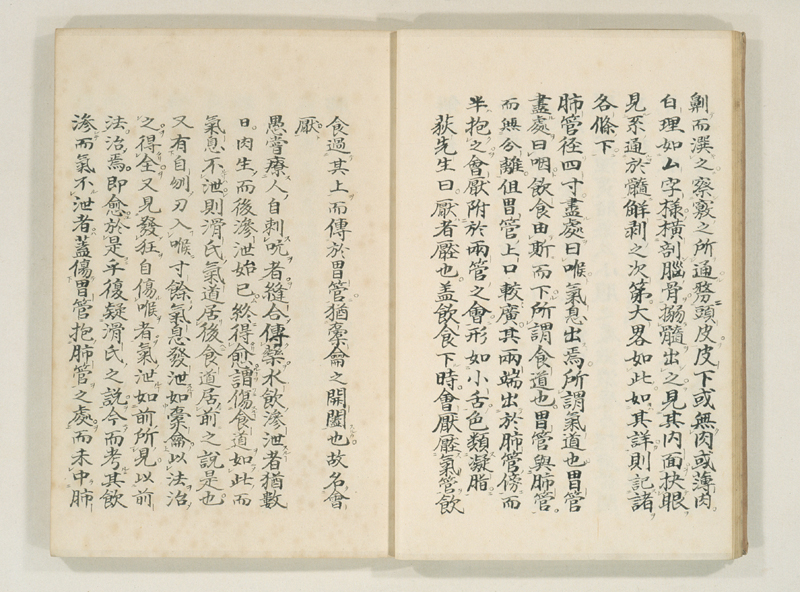 剿而潠之察竅之所通務頭皮皮下或無肉或薄肉
白理如厶字様横剖腦骨搦髓出之見其内面抉眼
見系通於髓解剥之次第大畧如此如其詳則記諸
各條下
肺管径四寸盡處曰喉氣息出焉所謂氣道也胃管
盡處曰咽飲食由斯而下所謂食道也胃管與肺管
而無分離但胃管上口較廣其兩端出於肺管傍而
半抱之會厭附於兩管之會形如小舌色類凝脂
荻先生曰厭者壓也盖飲食下時會厭壓氣管飲
食過其上而傳於胃管猶橐龠之開闔也故名會
厭
愚嘗療人自刺吭者縫合傳藥水飲滲泄者猶數
日肉生而後滲泄始已終得愈謂傷食道如此而
氣息不泄則滑氏氣道居後食道居前之說是也
又有自刎刃入喉寸餘氣息發泄如橐龠以法治
之得全又見發狂自傷喉者氣泄如前所見以前
法治焉即愈於是乎復疑滑氏之説今而考其飲
滲而氣不泄者蓋傷胃管抱肺管之處而未中肺